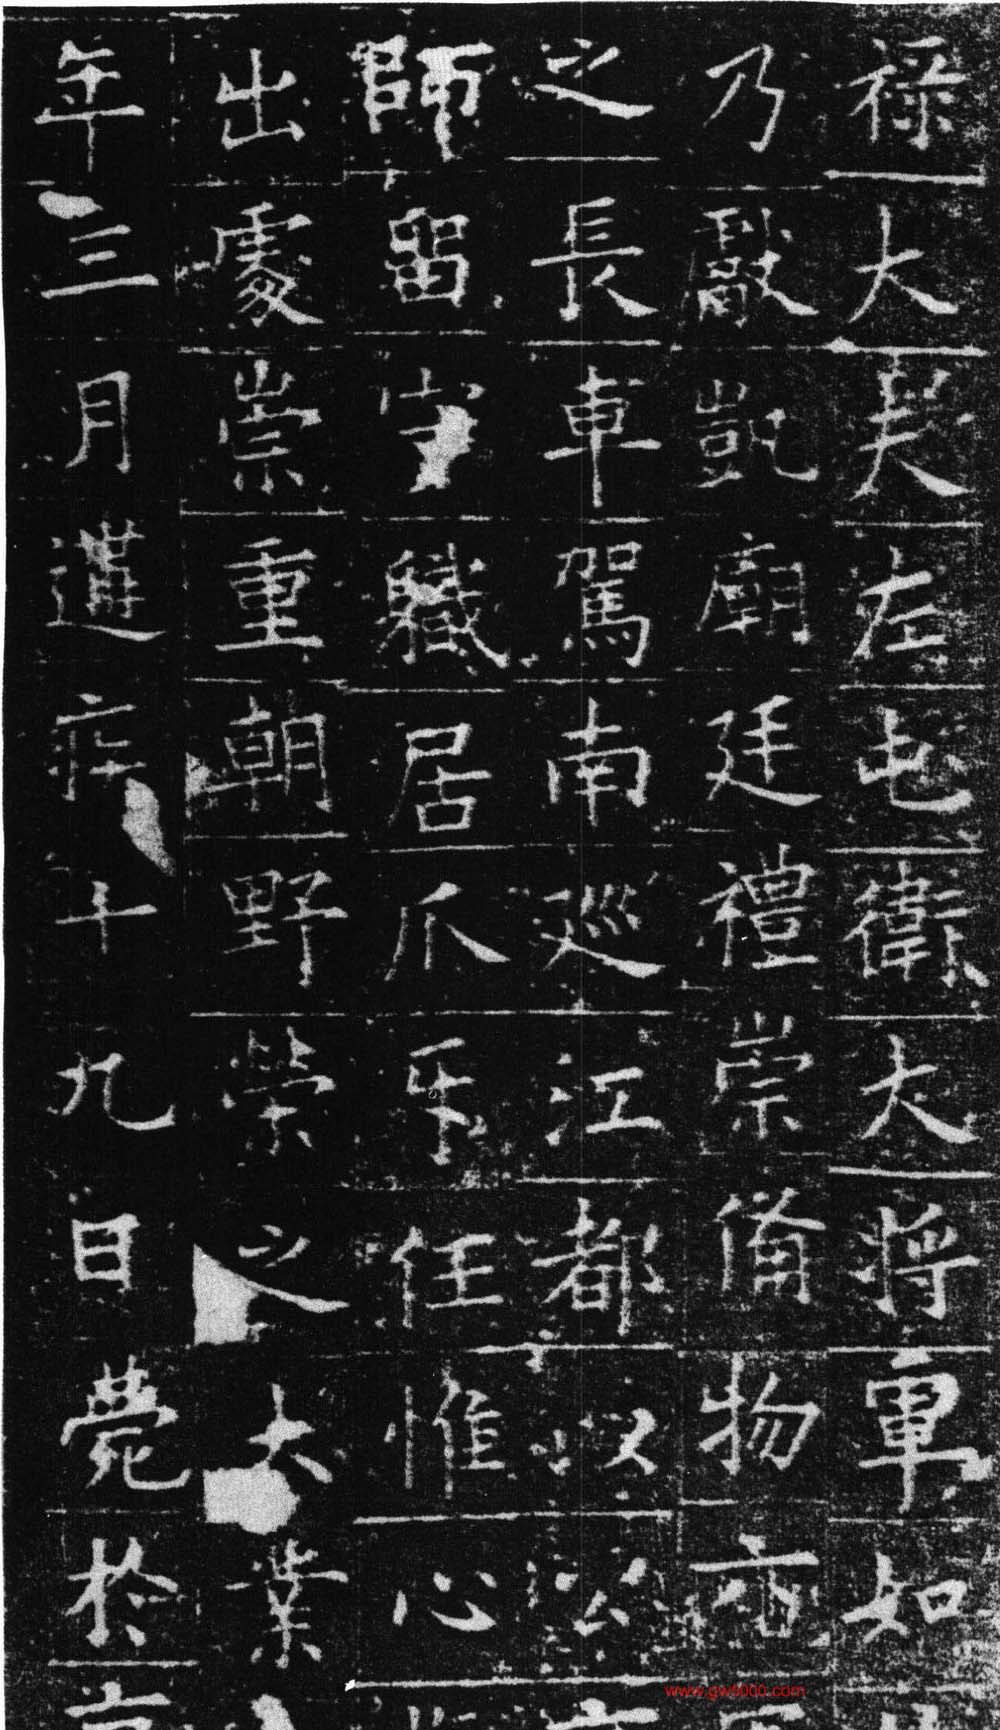 禄大夫左屯衛大將軍如
乃獻凱廟廷禮崇俻物
之長車駕南巡江都以公
師留守職居爪牙任惟心
出處崇重朝野榮之大業
年三月遘疾十九日薨於
www.gw8000.com